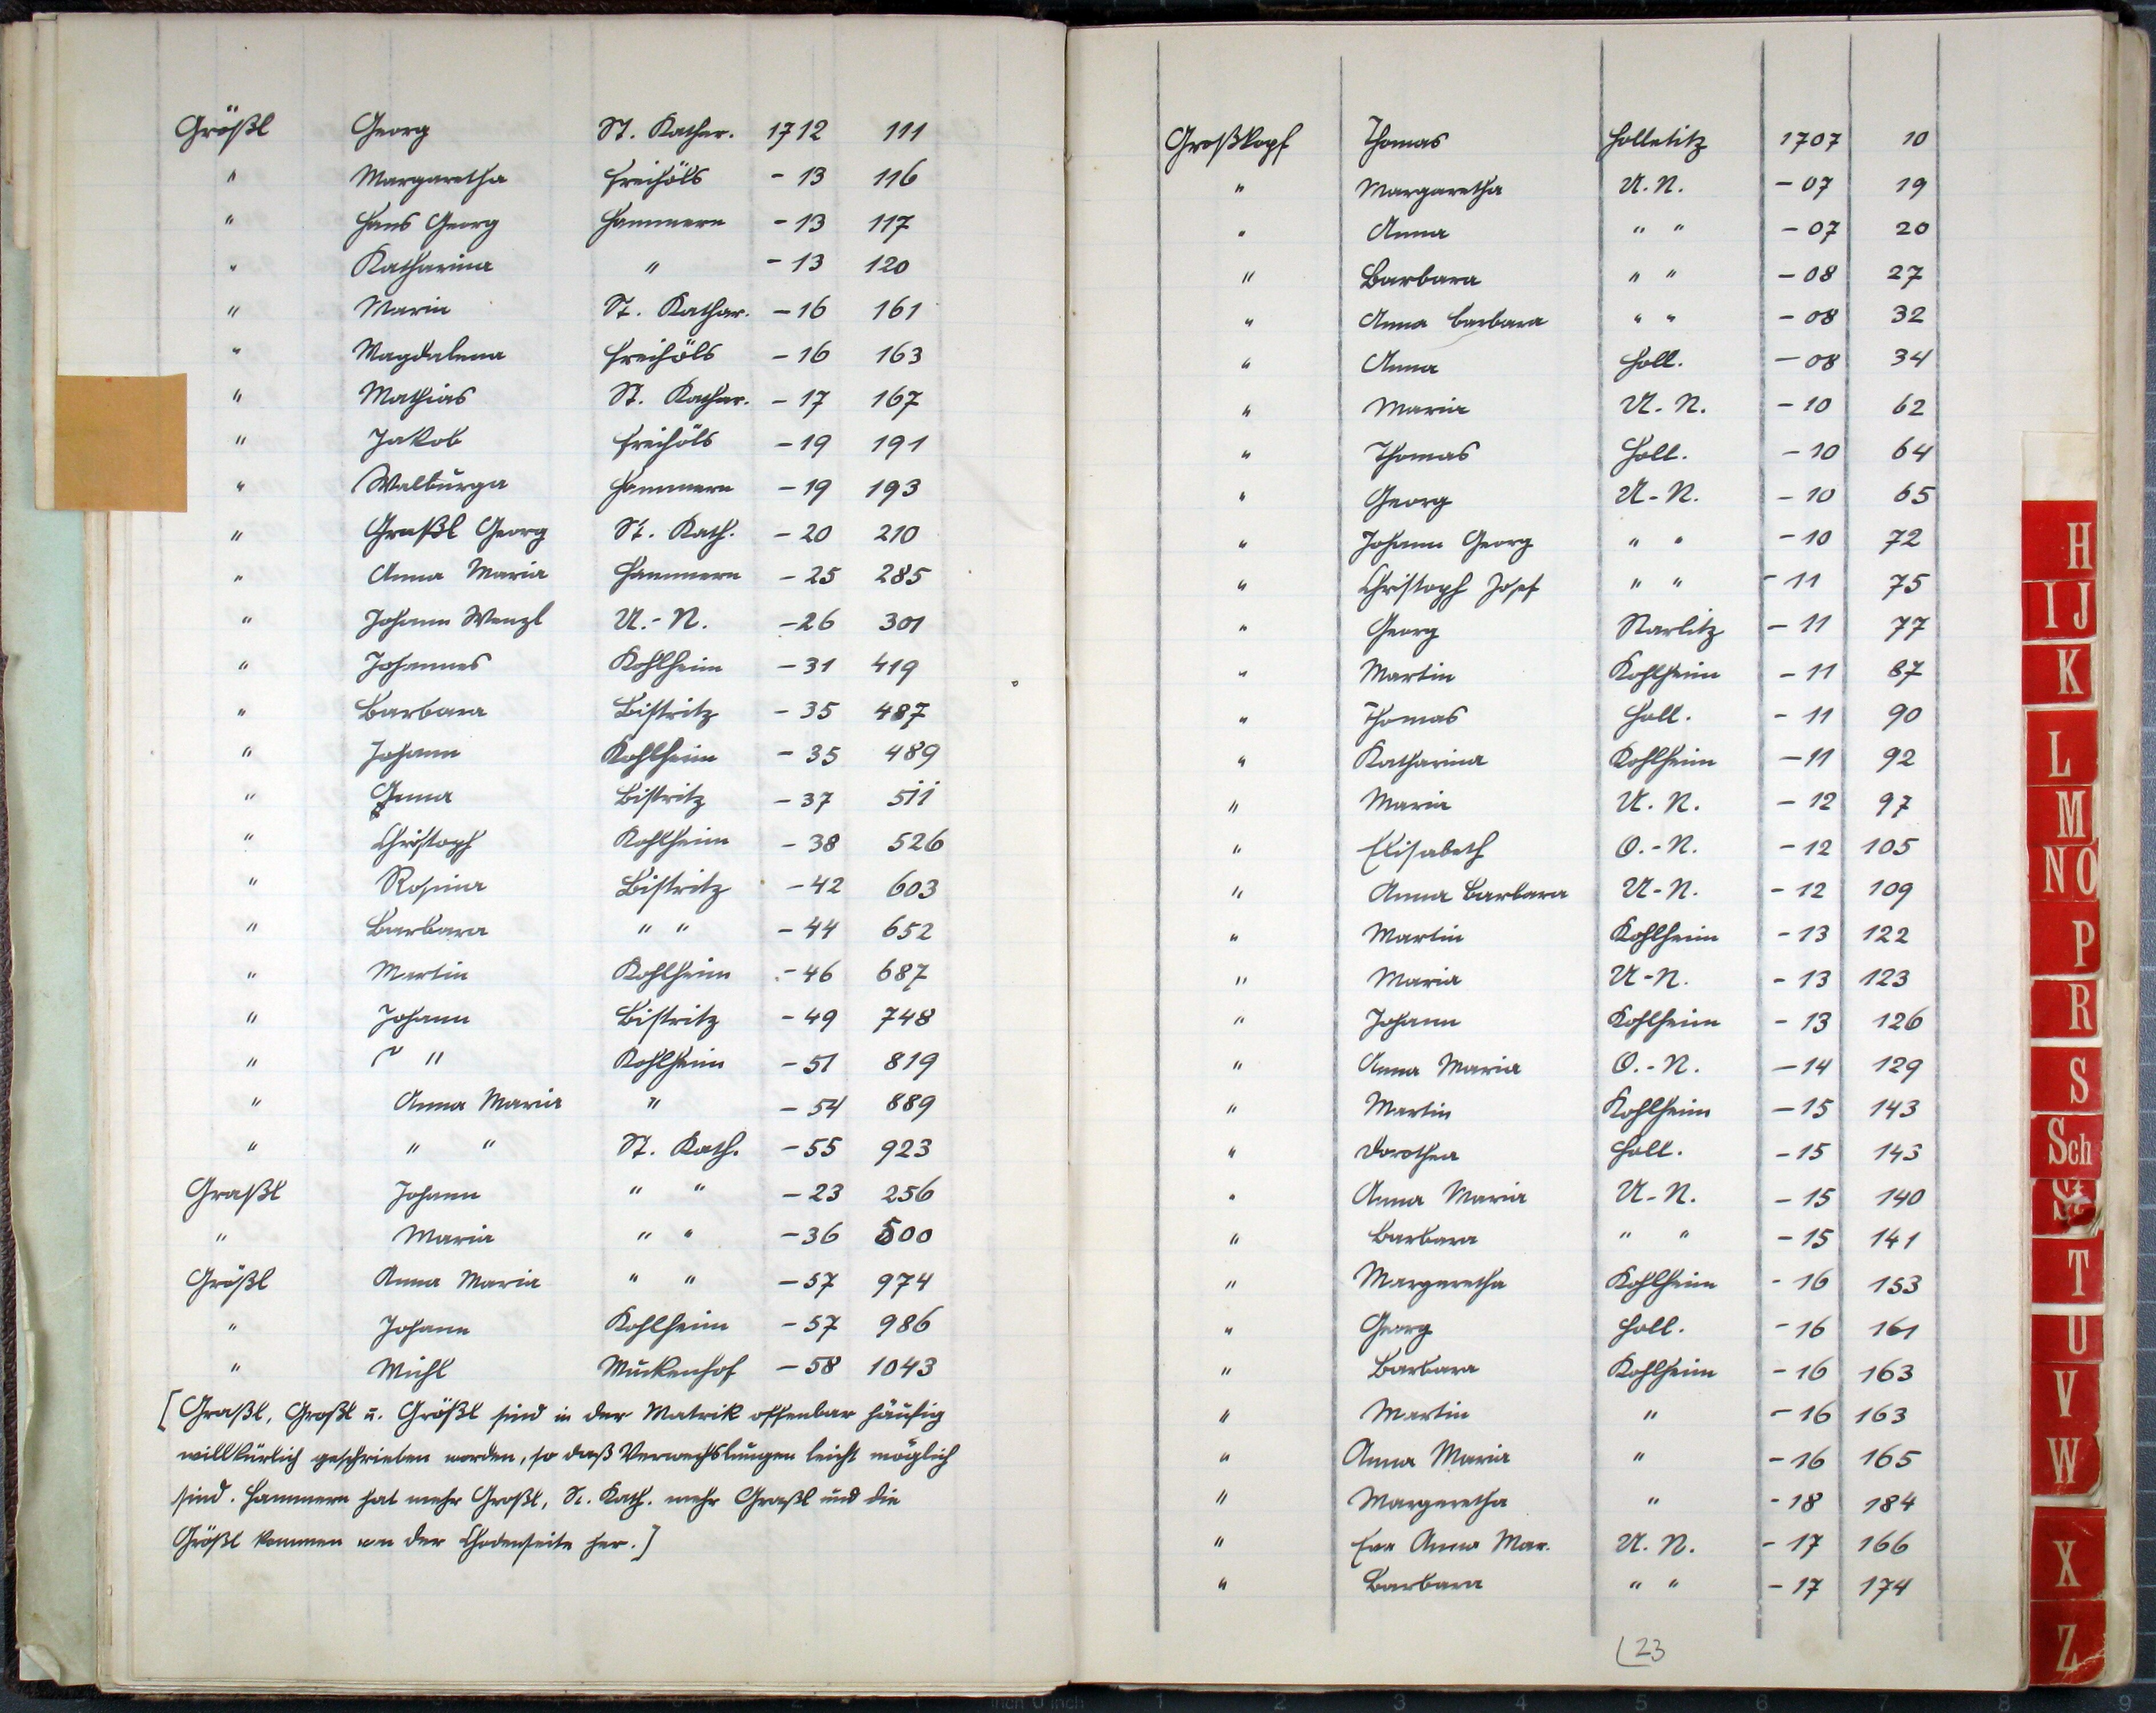 Größl Georg St. Kathar. 1712 111
" Margaretha Freihöls -13 116
" Hans Georg Hammern -13 117
" Katharina " -13 120
" Maria St. Kathar. -16 161
" Magdalena Freihöls -16 163
" Mathias St. Kathar. -17 167
" Jakob Freihöls -19 191
" Walburga Hammern -19 193
" Graßl Georg St. Kath. -20 210
" Anna Maria Hammern -25 285
" Johann Wenzl U.-N. -26 301
" Johannes Kohlheim -31 419
" Barbara Bistritz -35 487
" Johann Kohlheim -35 489
" Anna Bistritz -37 511
" Christoph Kohlheim -38 526
" Rosina Bistritz -42 603
" Barbara " " -44 652
" Martin Kohlheim -46 687
" Johann Bistritz -49 748
" " Kohlheim -51 819
" Anna Maria " -54 889
" " " St. Kath. -55 923
Graßl Johann " " -23 256
" Maria " " -36 500
Größl Anna Maria " " -57 974
" Johann Kohlheim -57 986
" Michl Muckenhof -58 1043
[Graßl, Großl u. Größl sind in der Matrik offenbar häufig
willkürlich geschrieben worden, so daß Verwechslungen leicht möglich
sind. Hammern hat mehr Großl, St. Kath. mehr Graßl und die
Größl kommen von der Chodenseite her.]
Großkopf Thomas Holletitz 1707 10
" Margaretha U.N. -07 19
" Anna " " -07 20
" Barbara " " -08 27
" Anna Barbara " " -08 32
" Anna Holl. -08 34
" Maria U.N. -10 62
" Thomas Holl. -10 64
" Georg U-N. -10 65
" Johann Georg " " -10 72
" Christoph Josef " " -11 75
" Georg Starlitz -11 77
" Martin Kohlheim -11 87
" Thomas Holl. -11 90
" Katharina Kohlheim -11 92
" Maria U.N. -12 97
" Elisabeth O.-N. -12 105
" Anna Barbara U-N. -12 109
" Martin Kohlheim -13 122
" Maria U-N. -13 123
" Johann Kohlheim -13 126
" Anna Maria O.-N. -14 129
" Martin Kohlheim -15 143
" Dorothea Holl. -15 143
" Anna Maria U-N. -15 140
" Barbara " " -15 141
" Margaretha Kohlheim -16 153
" Georg Holl. -16 161
" Barbara Kohlheim -16 163
" Martin " -16 163
" Anna Maria " -16 165
" Margaretha " -18 184
" Eva Anna Mar. U.N. -17 166
" Barbara " " -17 174
23
H
IJ
K
L
M
NO
P
R
S
Sch
St
T
U
V
W
X
Z
inch 0 inch 1 2 3 4 5 6 7 8 9